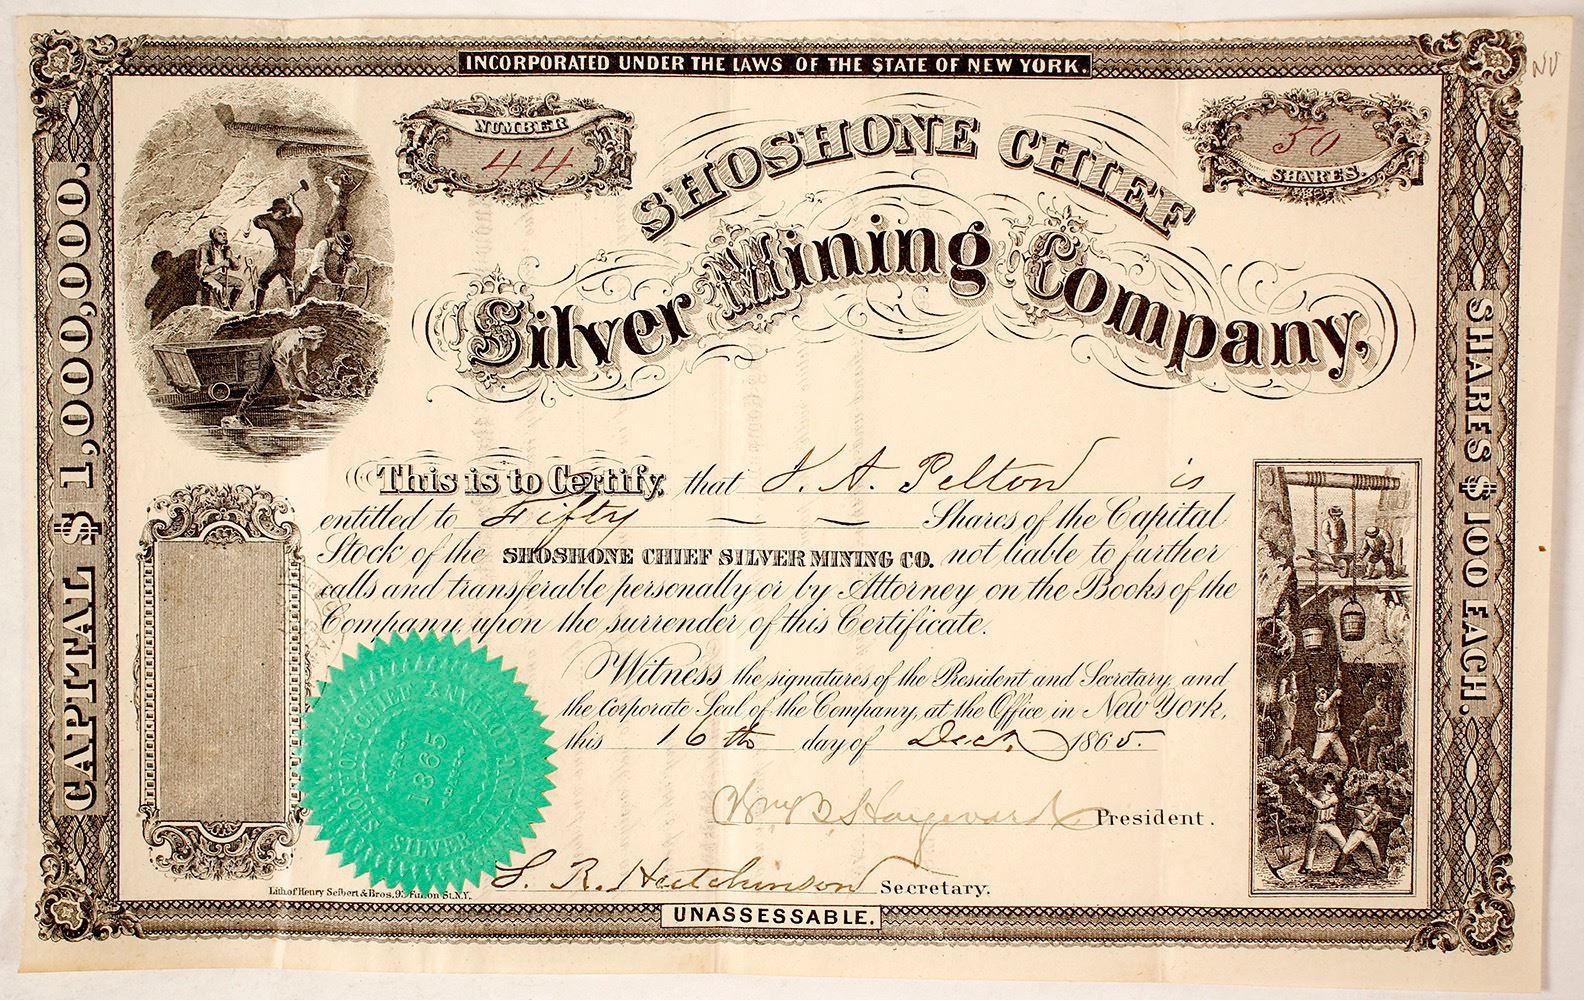 INCORPORATED UNDER THE LAWS OF THE STATE OF NEW YORK.
NV
NUMBER
44
50
SHARES.
SHOSHONE CHIEF
Silver Mining Company.
CAPITAL $1,000,000.
SHARES $100 EACH.
This is to Certify, that J. A. Pelton is
entitled to Fifty Shares of the Capital
Stock of the SHOSHONE CHIEF SILVER MINING CO. not liable to further
calls and transferable personally or by Attorney on the Books of the
Company upon the surrender of this Certificate.
Witness the signatures of the President and Secretary, and
the Corporate Seal of the Company, at the Office in New York,
this 16th day of Dec. 1865.
SHOSHONE CHIEF SILVER
1865
President.
L. R. Hutchinson Secretary.
Lith of Henry Seibert & Bros. Fulton St. N.Y.
UNASSESSABLE.